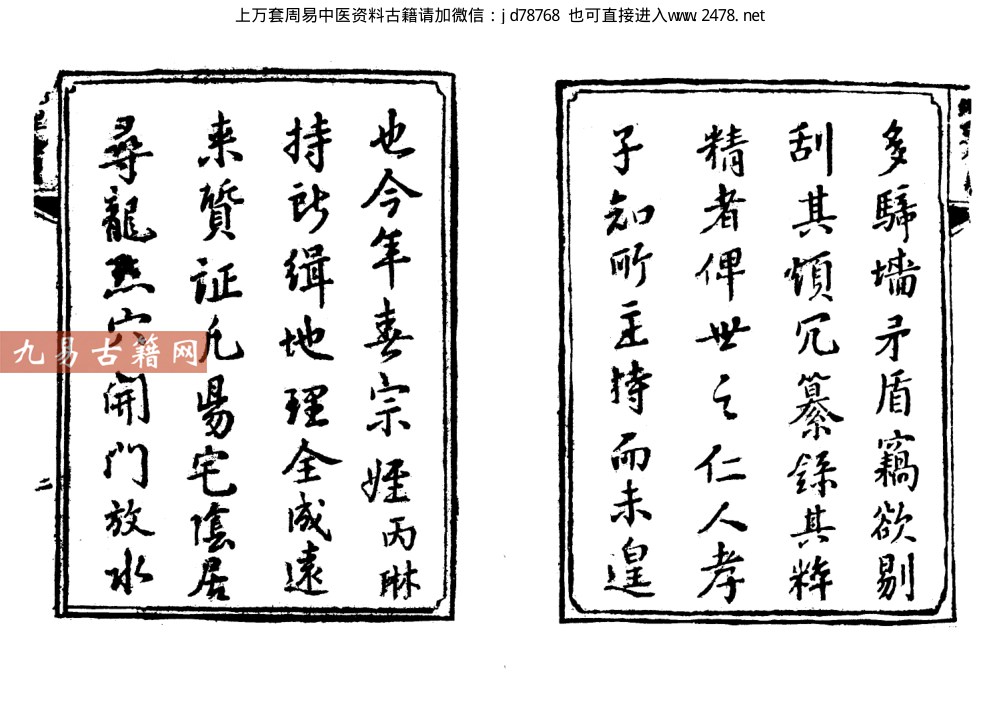 上万套周易中医资料古籍请加微信：jd78768 也可直接进入www.2478.net
多歸墻矛盾竊欲剔
刮其煩冗纂録其粹
精者俾世之仁人孝
子知所主持而未遑
也今年春宗姪丙琳
持所緝地理全成遠
来質証凡陽宅陰居
尋龍点穴開門放水
二
九易古籍网